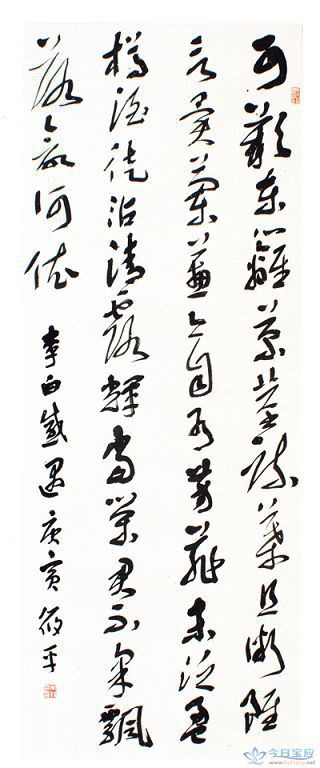 可歎東籬菊莖疏葉且微雖
言異蘭蕙亦自有芳菲未泛盈
樽酒徒沾清露輝當榮君不采飄
落欲何依
李白感遇庚寅筱平
今日宝应